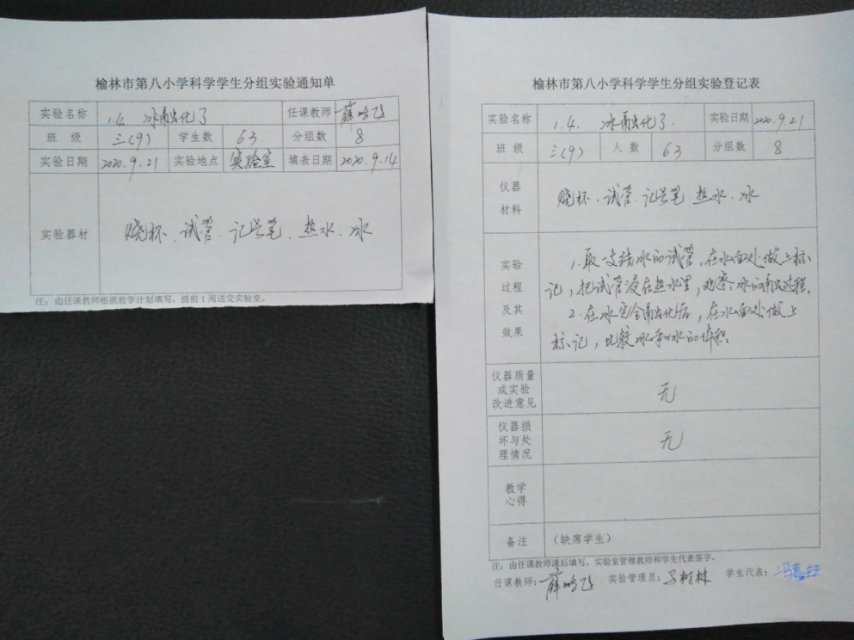 榆林市第八小学科学学生分组实验通知单
实验名称 1.4. 冰融化了 任课教师 薛鸣飞
班 级 三(9) 学生数 63 分组数 8
实验日期 2020.9.21 实验地点 实验室 填表日期 2020.9.14
实验器材 烧杯、试管、记号笔、热水、冰
注：由任课教师根据教学计划填写，提前1周送交实验室。
榆林市第八小学科学学生分组实验登记表
实验名称 1.4. 冰融化了. 实验日期 2020.9.21
班 级 三(9) 人 数 63 分组数 8
仪器
材料
烧杯、试管、记号笔、热水、冰
实验
过程
及其
效果
1.取一支结冰的试管,在水面处做上标
记,把试管浸在热水里,观察冰的融化过程.
2.在冰完全融化后,在水面处做上
标记,比较冰和水的体积
仪器质量
或实验
改进意见
无
仪器损
坏与处
理情况
无
教学
心得
备注 (缺席学生)
注：由任课教师课后填写，实验室管理教师和学生代表签字。
任课教师：薛鸣飞 实验管理员： 学生代表：